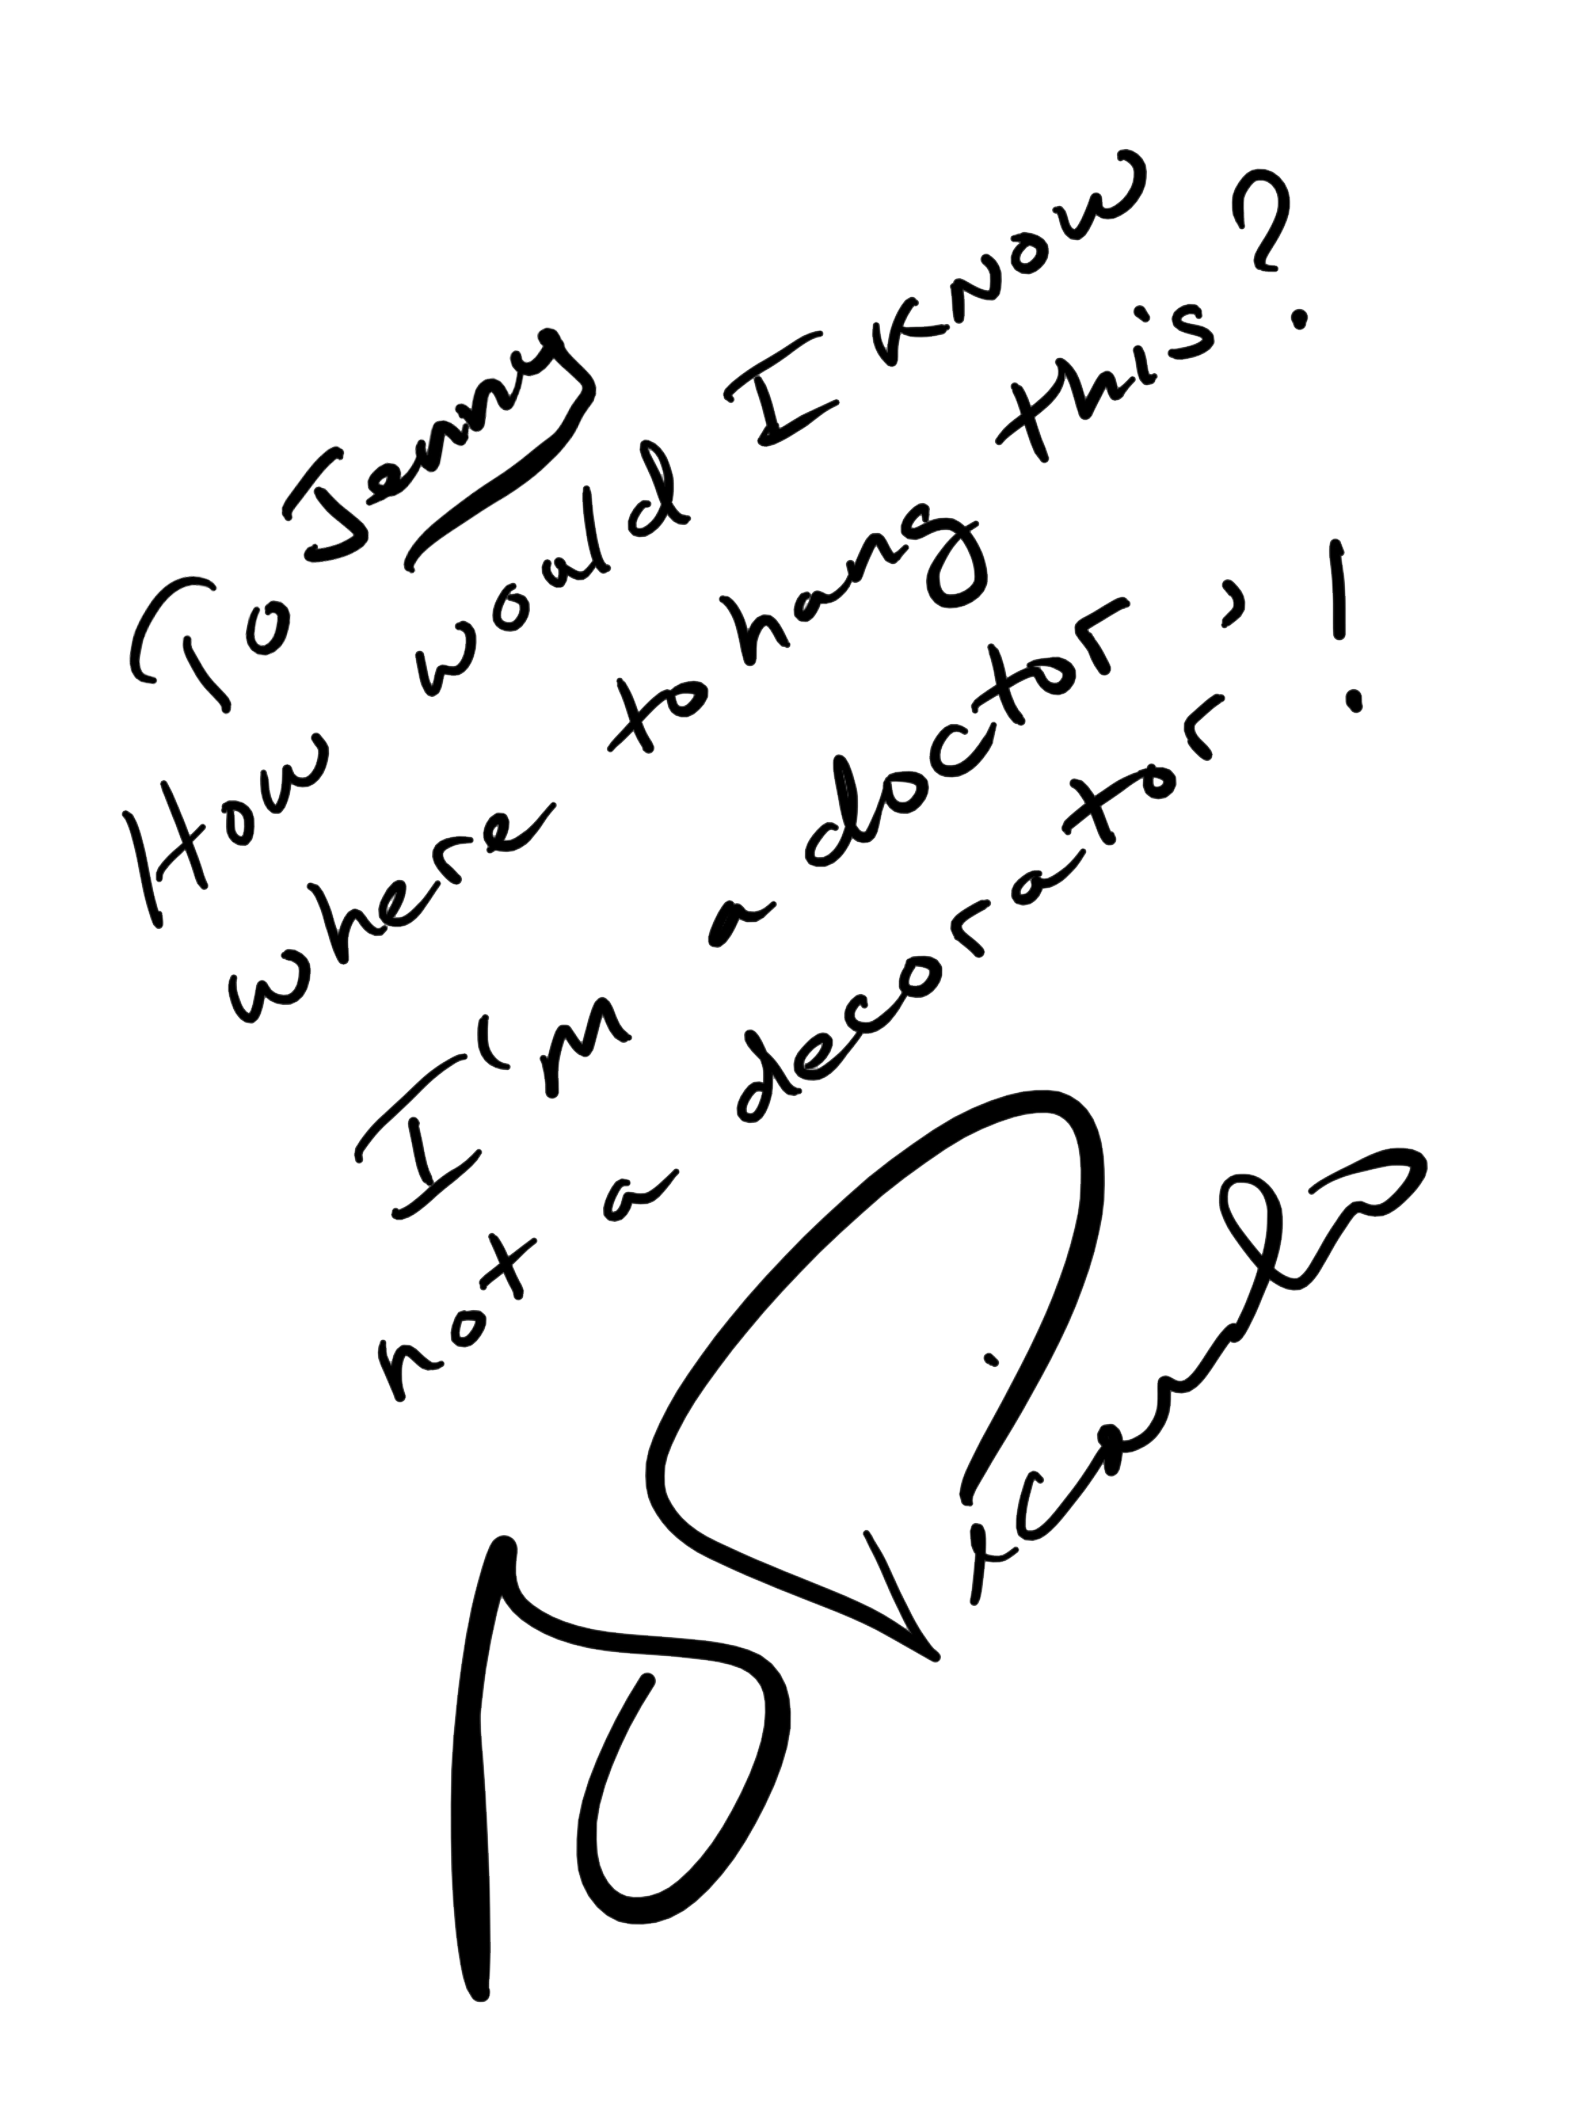 To Jenny
How would I know
where to hang this?
I'm a doctor,
not a decorator!